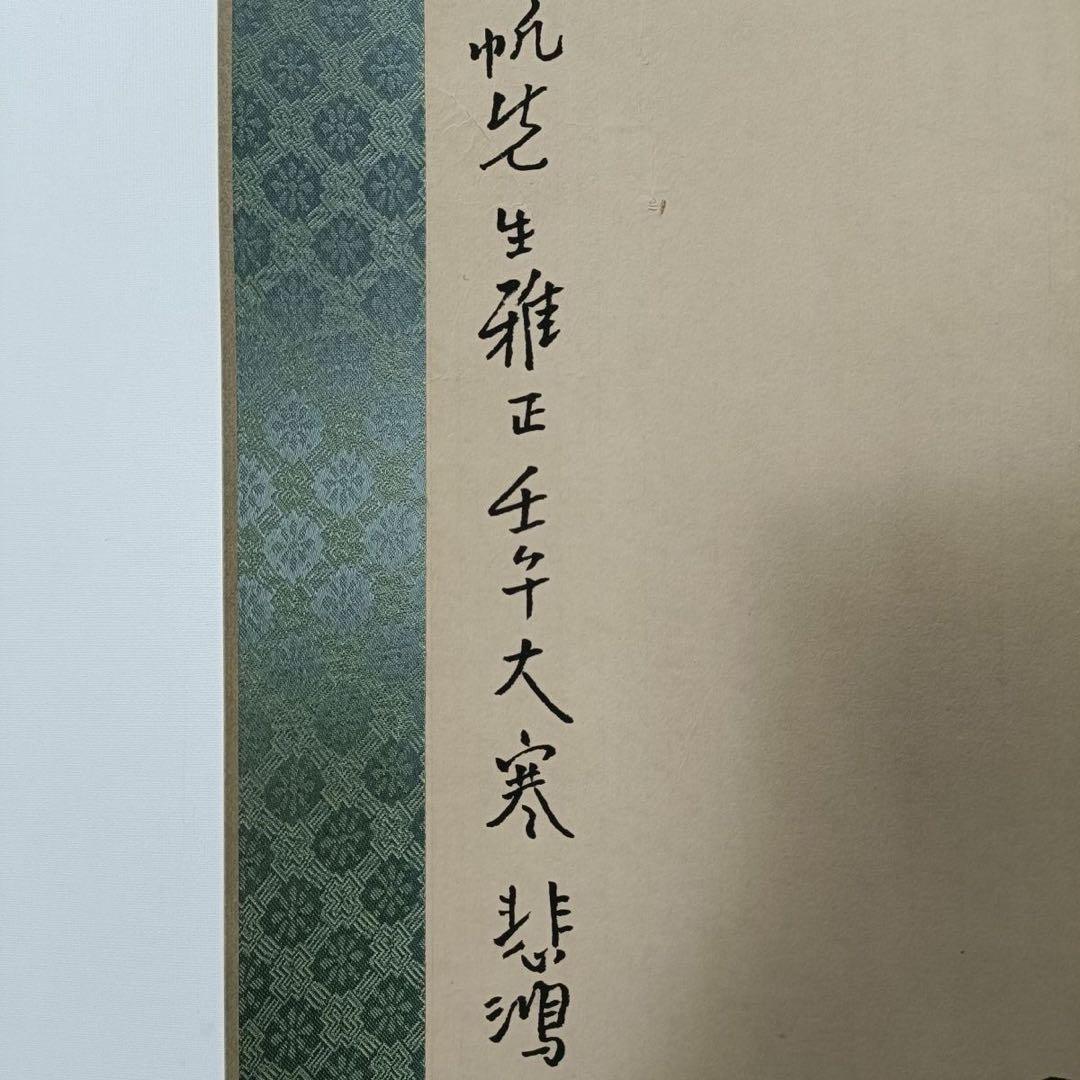 帆先生雅正壬午大寒悲鸿